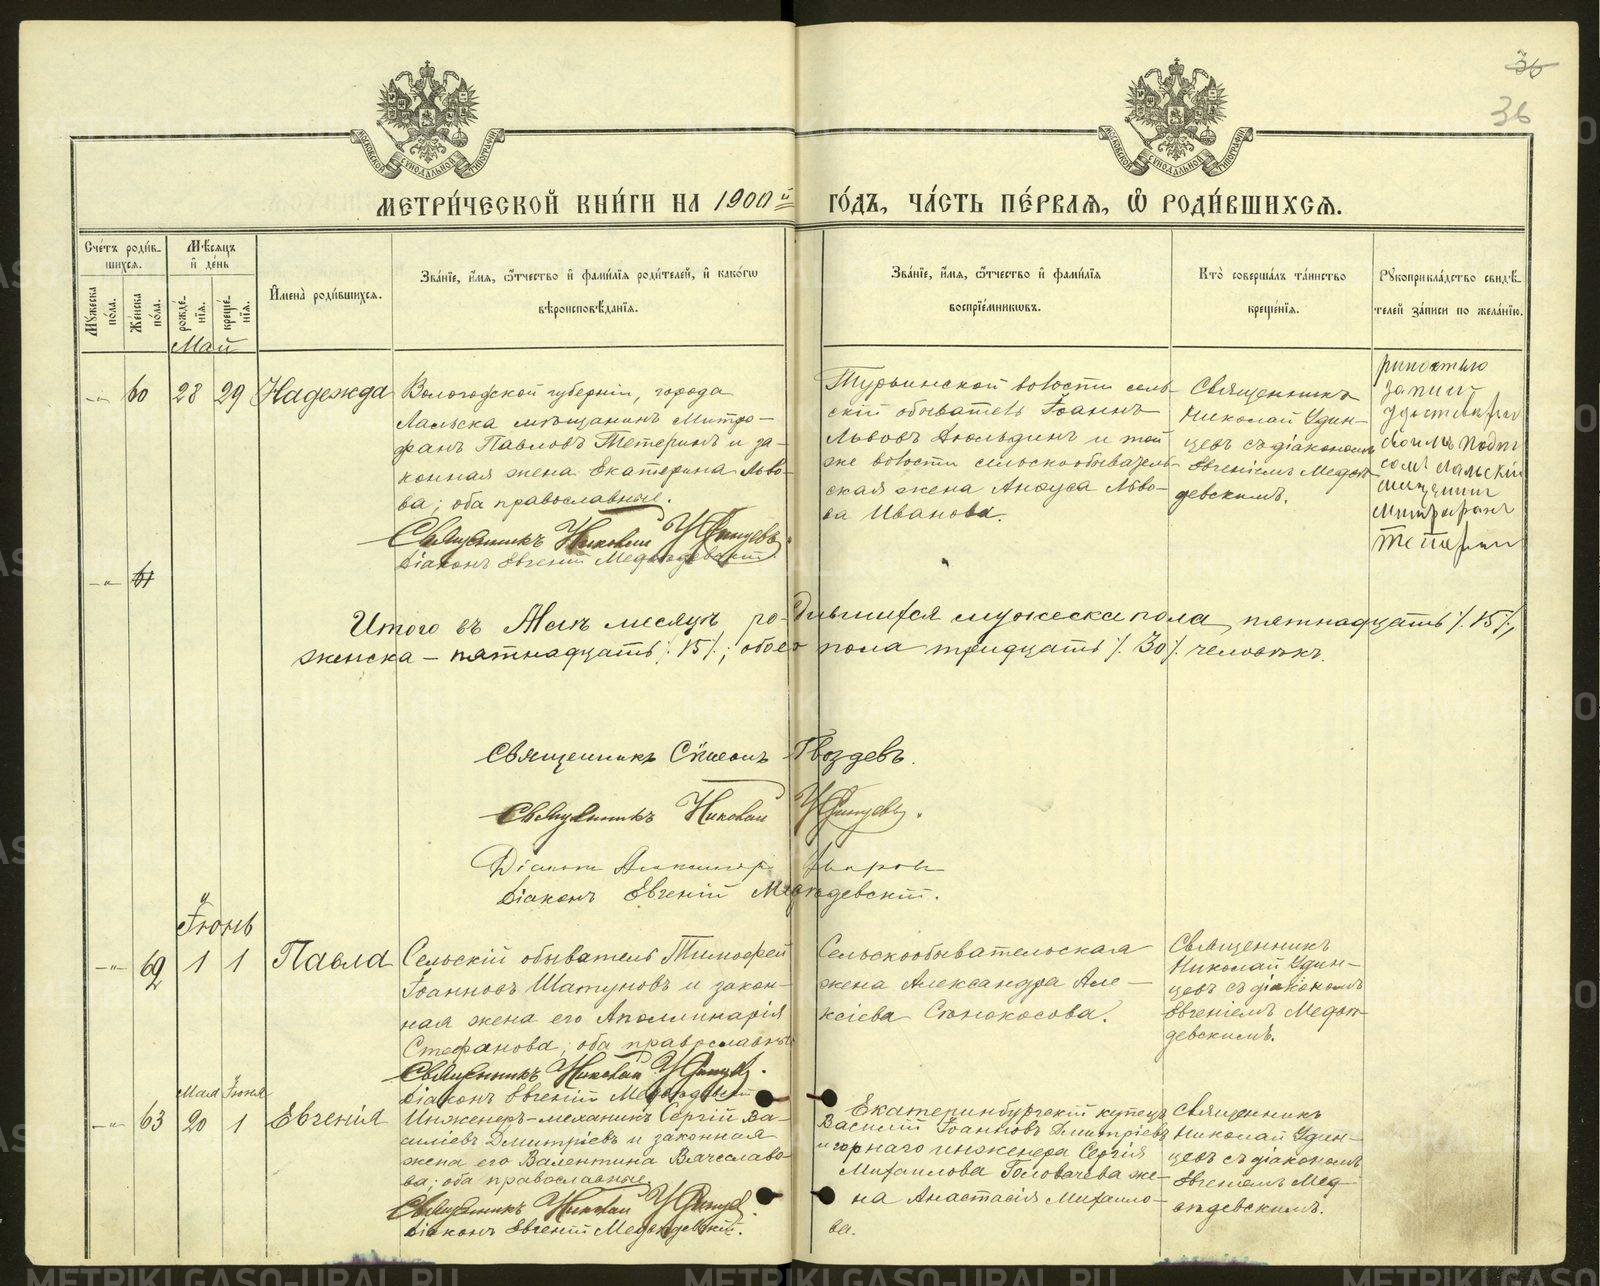 36
36
МОСКОВСКОЙ СѴНОДАЛЬНОЙ ТИПОГРАФІИ
МОСКОВСКОЙ СѴНОДАЛЬНОЙ ТИПОГРАФІИ
МЕТРИ́ЧЕСКОЙ КНИ́ГИ НА 1900й ГО́ДЪ, ЧА́СТЬ ПЕ́РВАѦ, Ѡ҆ РОДИ́ВШИХСѦ.
Сче́тъ роди́в-
шихсѧ.
Мꙋ́жеска по́ла.
Же́нска по́ла.
Мѣ́сѧцъ
и҆ де́нь
рожде́-
нїѧ.
креще́-
нїѧ.
И҆мена̀ роди́вшихсѧ.
Зва́нїе, и҆́мѧ, ѻ҆́тчество и҆ фами́лїѧ роди́телей, и҆ како́гѡ
вѣроисповѣ́данїѧ.
Зва́нїе, и҆́мѧ, ѻ҆́тчество и҆ фами́лїѧ
воспрїе́мникѡвъ.
Кто̀ соверша́лъ та́инство
креще́нїѧ.
Рꙋкоприкла́дство свидѣ́-
телей за́писи по жела́нїю.
Май
60 28 29 Надежда
Вологодской губерніи, города
Лальска мѣщанинъ Митро-
фанъ Павловъ Тетеринъ и за-
конная жена Екатерина Льво-
ва; оба православные.
Священникъ Николай Удинцевъ
Діаконъ Евгеній Медвѣдевскій
Турьинской волости сель-
скій обыватель Іоаннъ
Львовъ и той
же волости сельскообыватель-
ская жена Анфуса Льво-
ва Иванова.
Священникъ
Николай Удин-
цевъ съ діакономъ
Евгеніемъ Медвѣ-
девскимъ.
записи
своимъ подпи
сомъ Лальскій
мещанинъ
Митрофанъ
Тетеринъ
61
Итого въ Маѣ месяцѣ родившихся мужеска пола пятнадцать /. 15 /.,
женска – пятнадцать /. 15 /.; обоего пола тридцать /. 30 /. человѣкъ.
Священникъ Симеонъ Гвоздевъ.
Священникъ Николай Удинцевъ.
Діаконъ Александръ
Діаконъ Евгеній Медвѣдевскій.
Іюнь
62 1 1 Павла
Сельскій обыватель Тимофей
Іоанновъ Шатуновъ и закон-
ная жена его Аполлинарія
Стефанова, оба православные
Священникъ Николай Удинцевъ.
Діаконъ Евгеній Медвѣдевскій
Сельскообывательская
жена Александра Але-
ксіева Синокосова.
Священникъ
Николай Удин-
цевъ съ діакономъ
Евгеніемъ Медвѣ-
девскимъ.
Мая Іюня
63 20 1 Евгенія
Инженеръ-механикъ Сергій Ва-
силіевъ Дмитріевъ и законная
жена его Валентина Вячеславо-
ва; оба православные
Священникъ Николай Удинцевъ.
Діаконъ Евгеній Медвѣдевскій.
Екатеринбургскій купецъ
Василій Іоанновъ Дмитріевъ
и горнаго инженера Сергія
Михаилова Головачева же-
на Анастасія Михаило-
ва.
Священникъ
Николай Удин-
цевъ съ діакономъ
Евгеніемъ Мед-
вѣдевскимъ.
METRIKI.GASO-URAL.RU